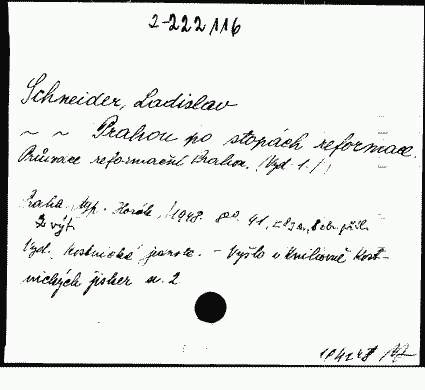 2-222/116
Schneider, Ladislav
~ ~ Prahou po stopách reformace.
Průvodce reformační Prahou. (Vyd. 1.)
Praha, Horák, 1948. 8°. 41,
2 výt.
Vyd. Kostnická jednota. - Vyšlo v knihovně Kost-
nických jisker č. 2